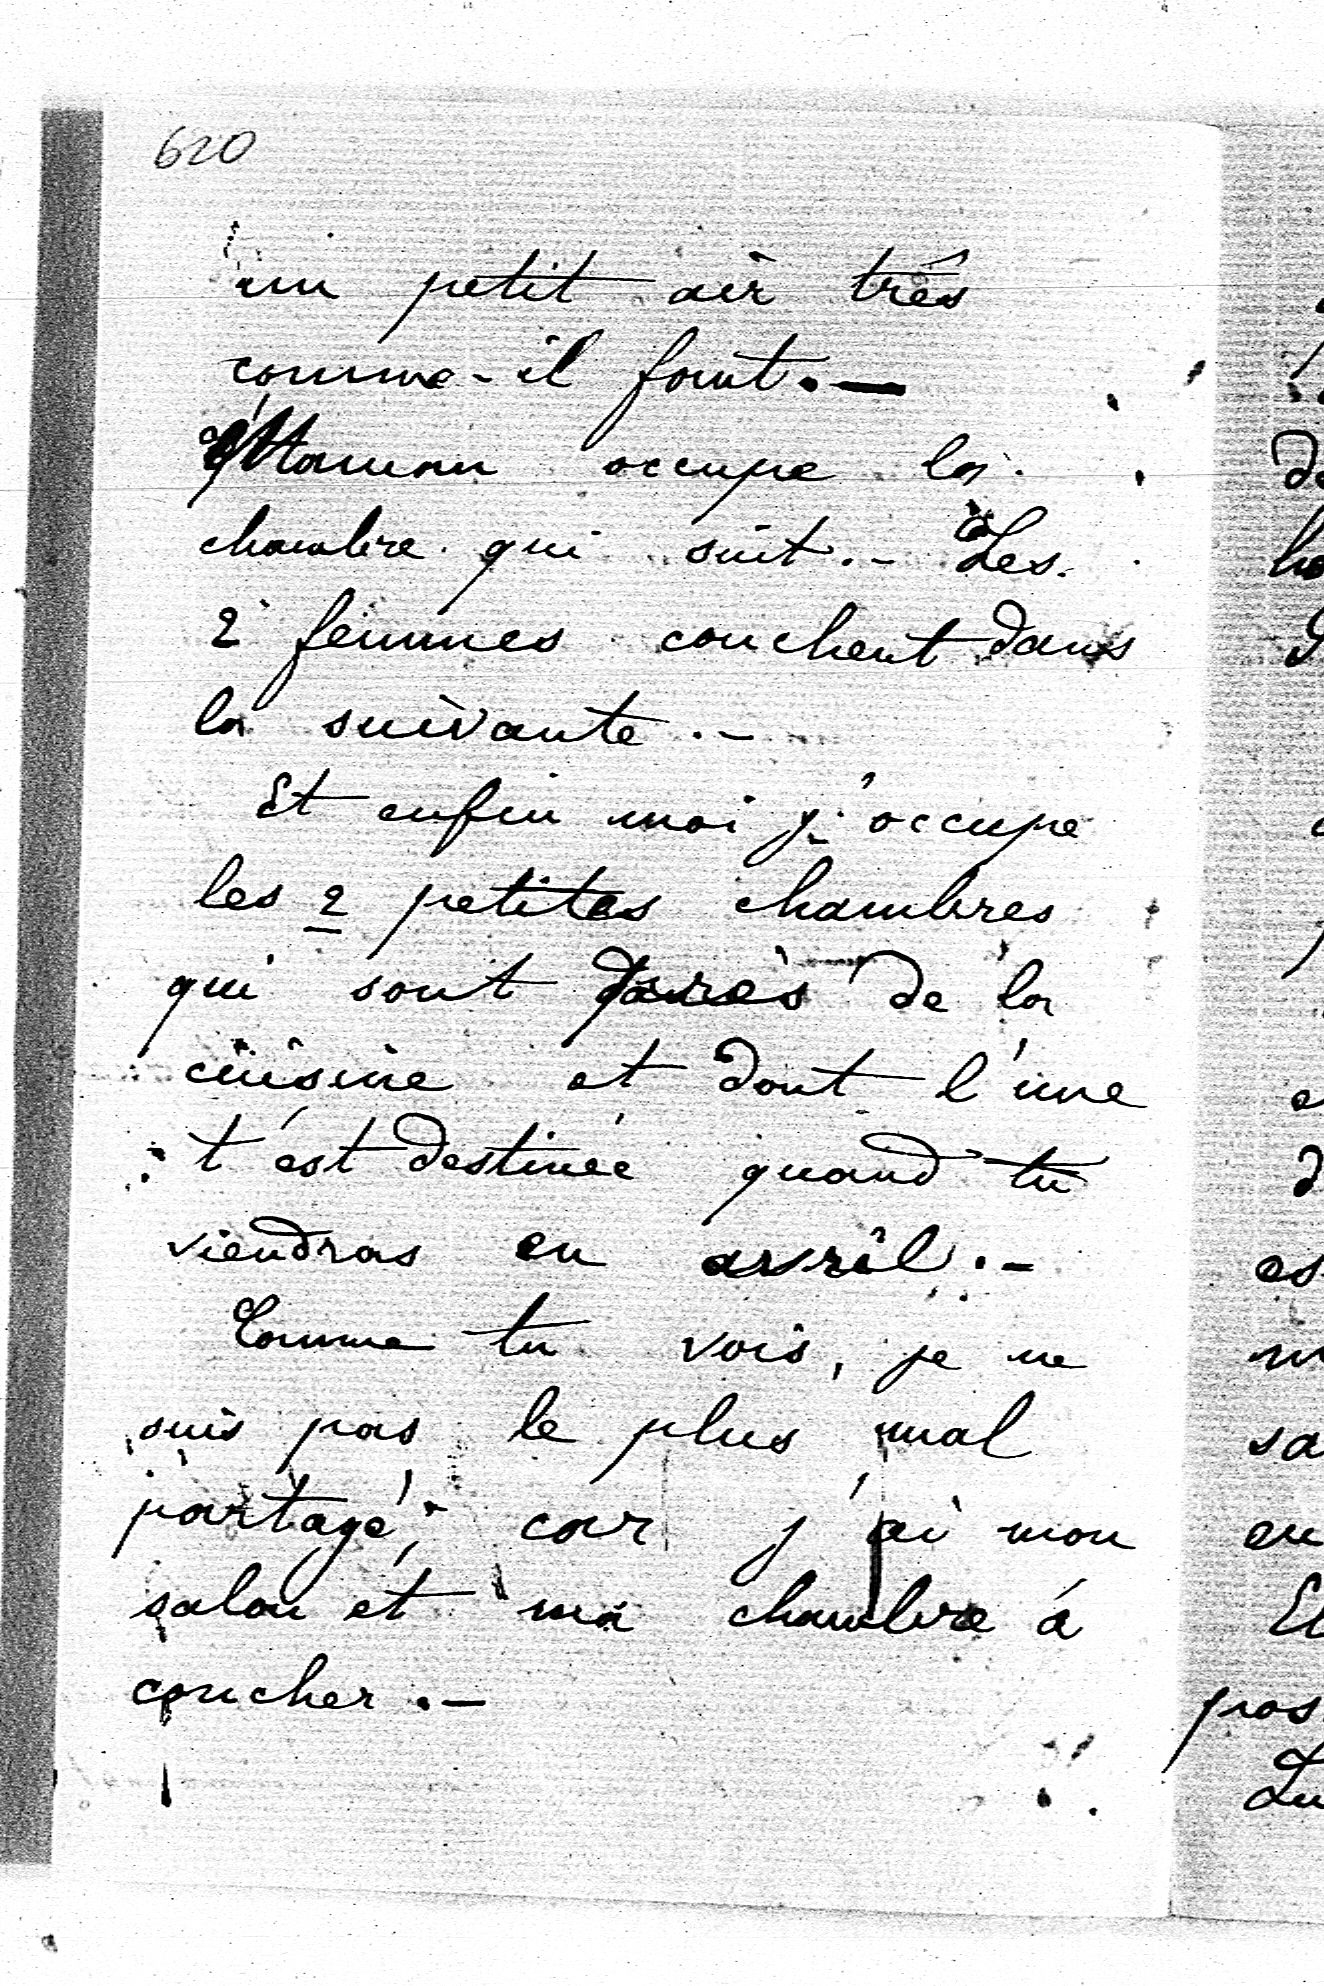 620
un petit air très
comme-il faut. —
Maman occupe la
chambre qui suit. - Les
2 femmes couchent dans
la suivante. -
Et enfin moi j'occupe
les 2 petites chambres
qui sont près de la
cuisine et dont l'une
t'est destinée quand tu
viendras en avril. -
Comme tu vois, je ne
suis pas le plus mal
partagé; car j'ai mon
salon et ma chambre à
coucher. -